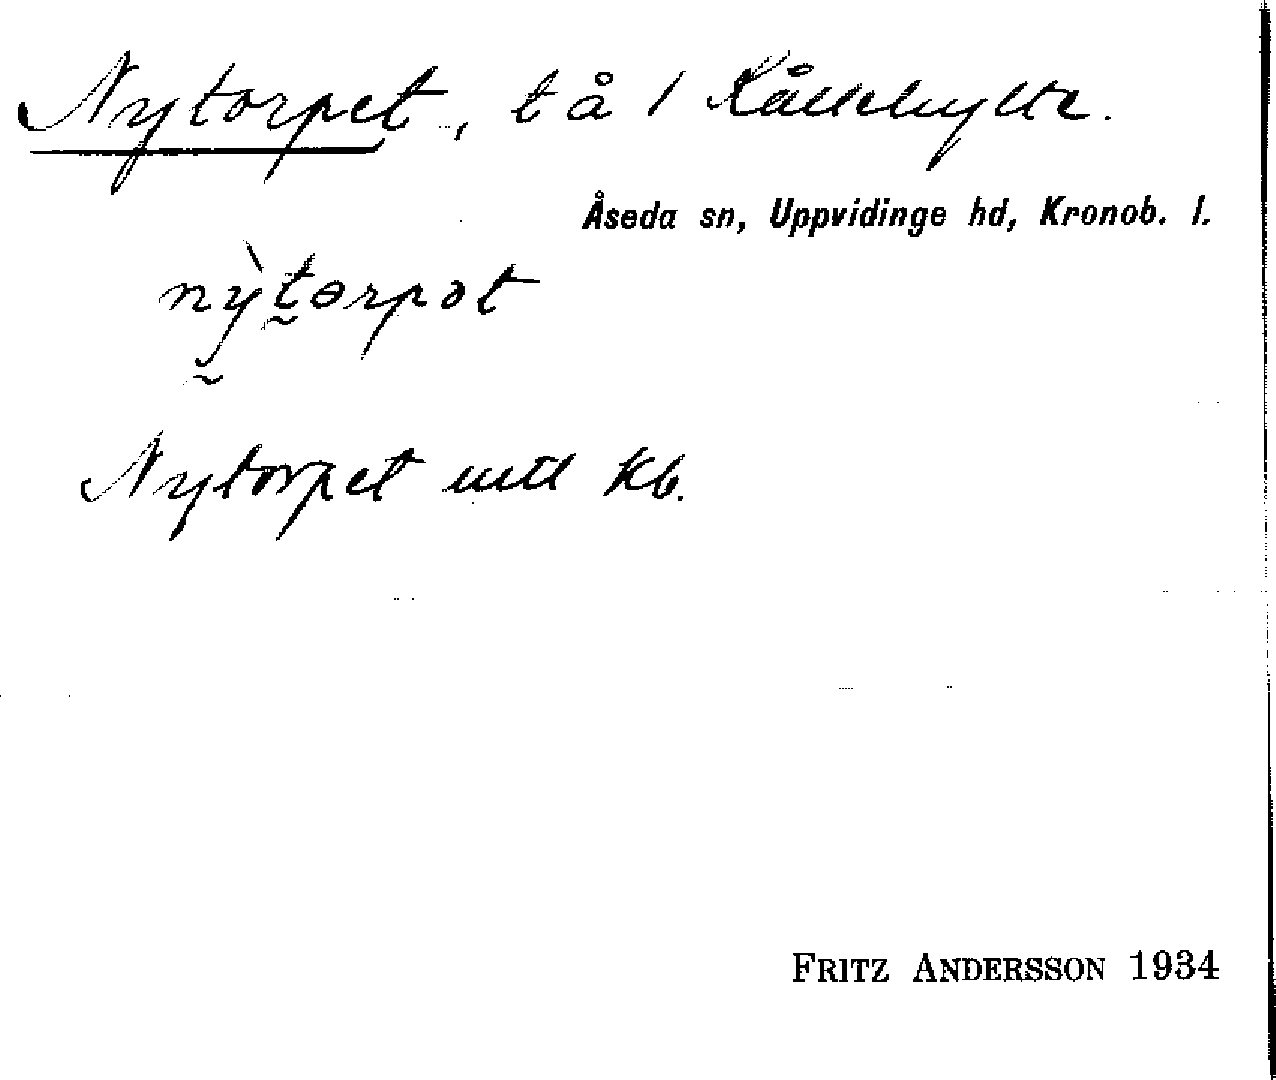 Nytorpet, tå 1 Kållehylte.
Åseda sn, Uppvidinge hd, Kronob. l.
nỳtorpət
Nytorpet uttl kb.
FRITZ ANDERSSON 1934